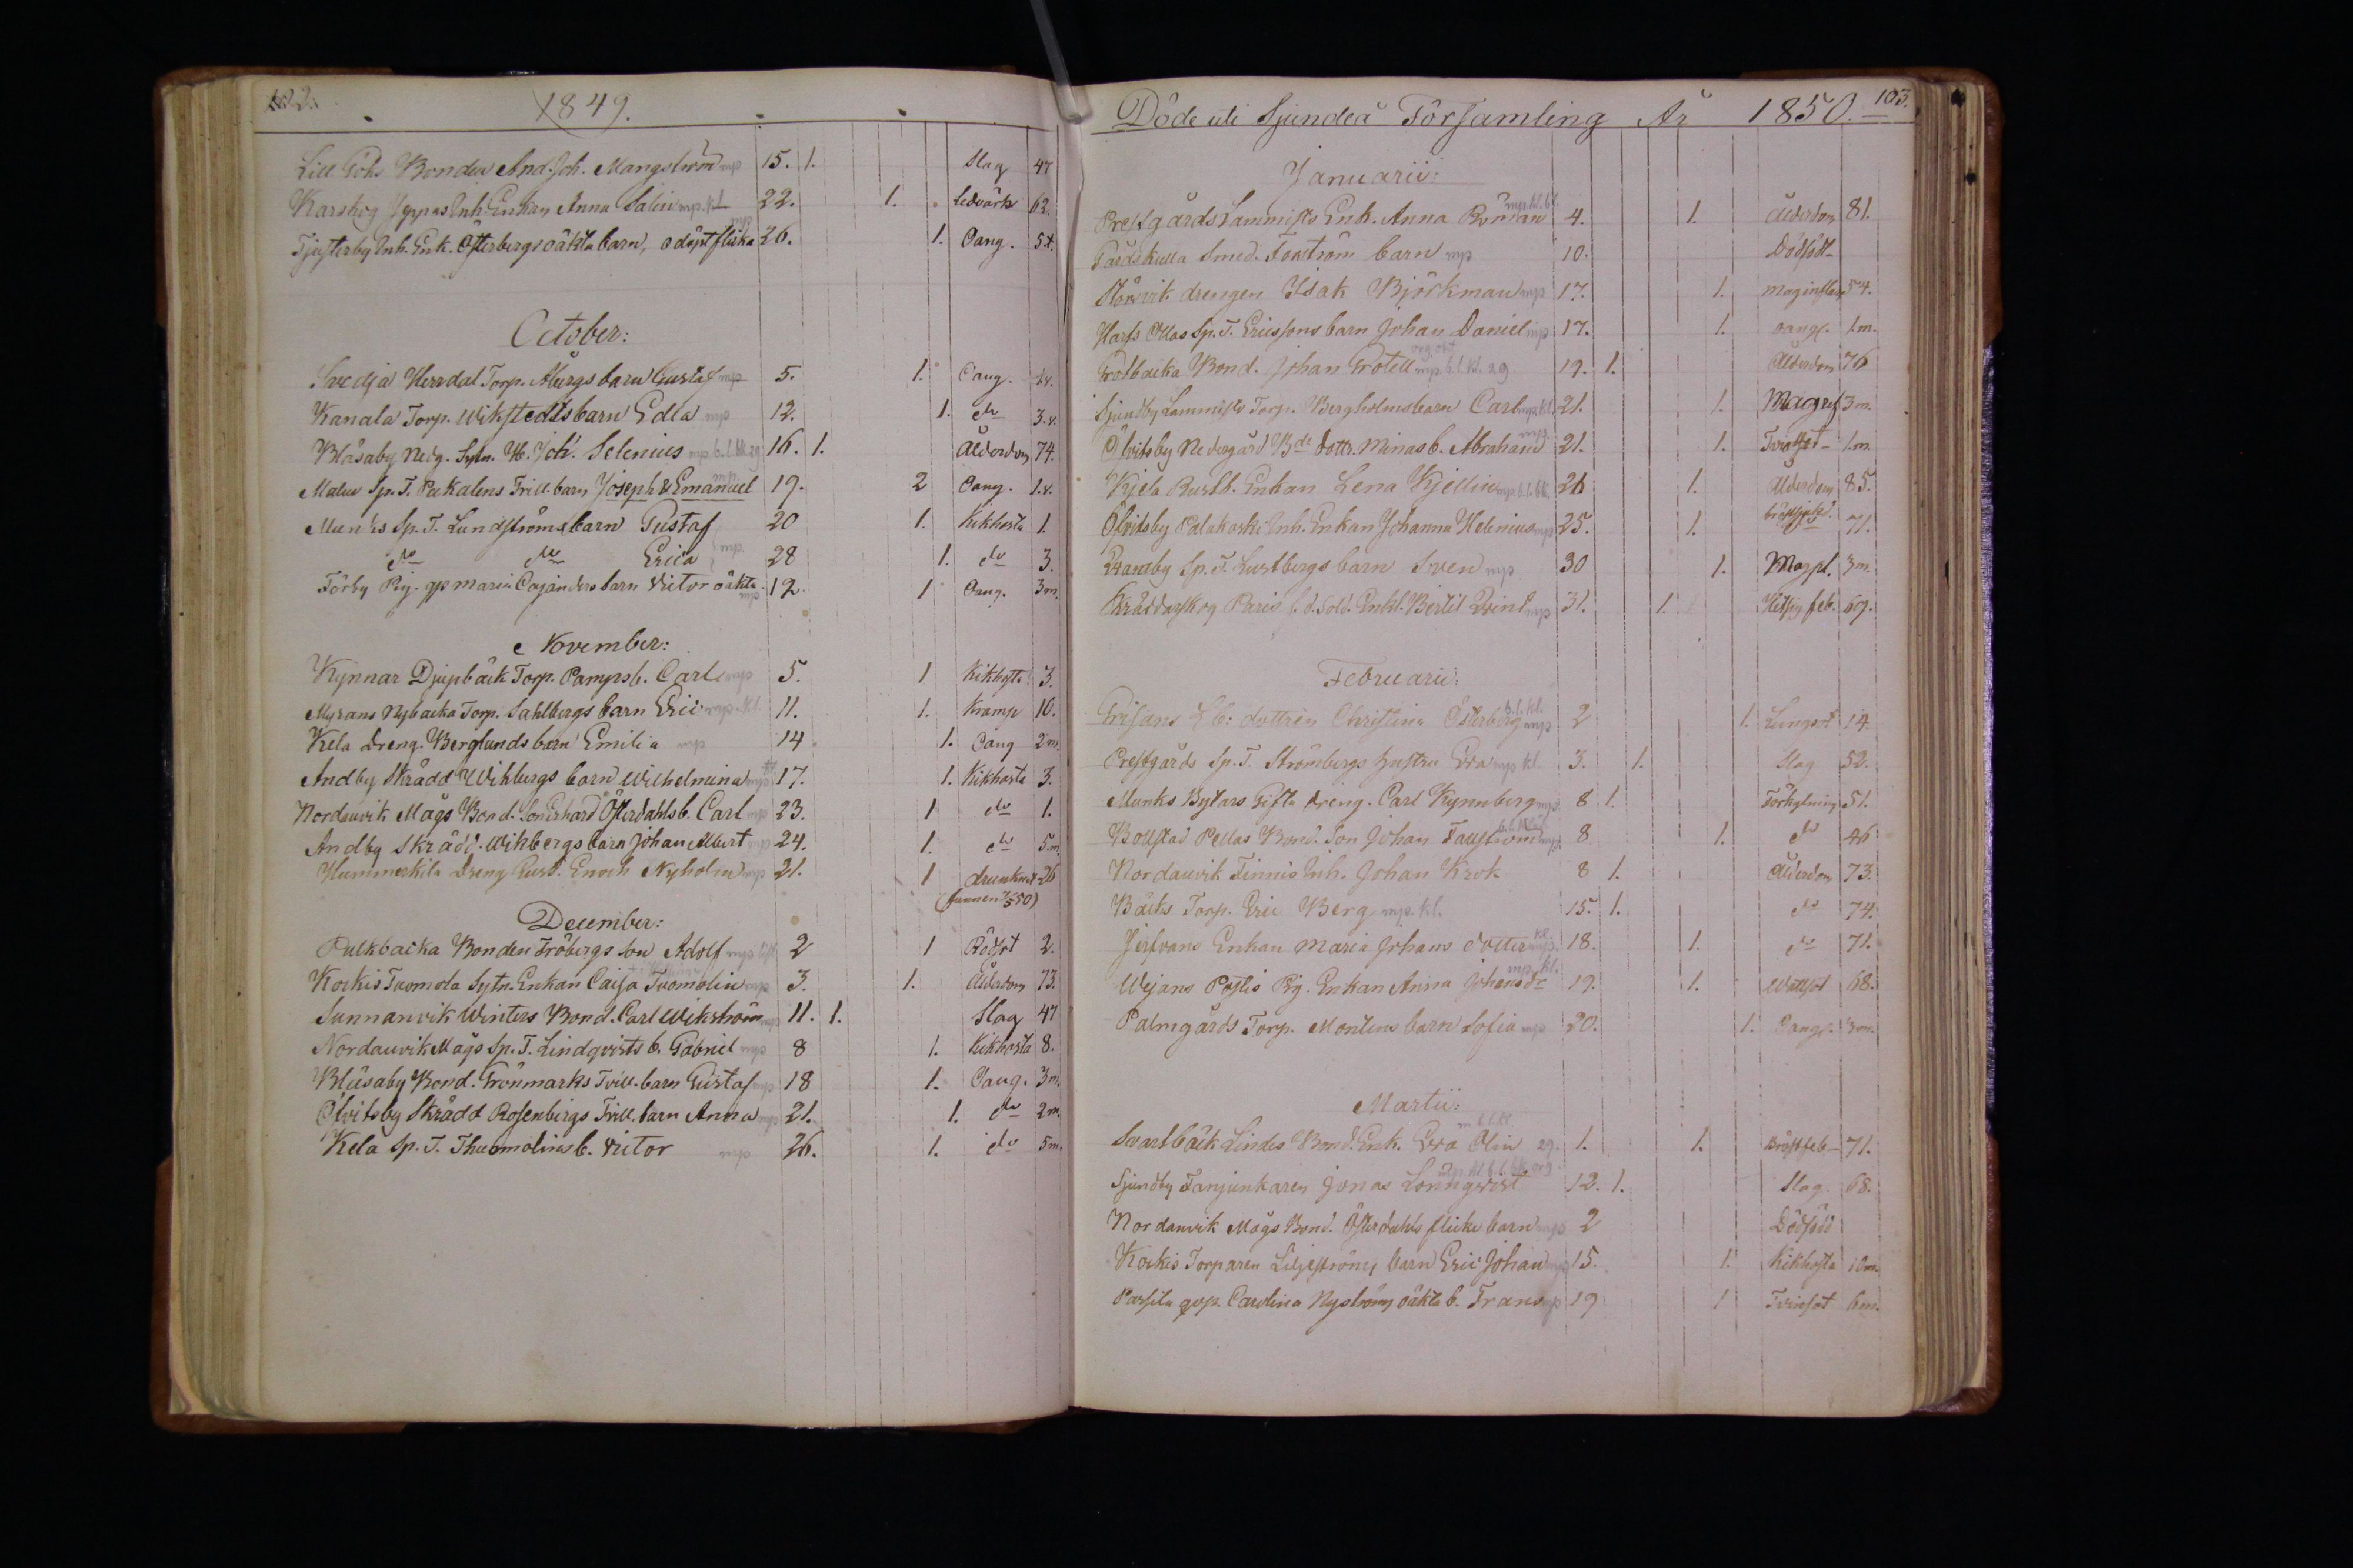 102.
1849.
Lill Göhs Bonden And. Joh. Mangström mp 15. 1. Slag 47
Karskog Jeppas Inh. Enkan Anna Salin mp. kl 22. 1. Ledvärk 62.
Tjusterby Inh. Enk. Österbergs oäkta barn, odöpt flicka mp 26. 1. Oang. 5 d.
October:
Svedja Herrdal Torp. Åbergs barn Gustaf mp 5. 1. Oang.
Kanala Torp. Wikstedts barn Edla mp 12. 1. do 3. v.
Blåsaby Nedg. Sytn. H. Joh. Selenius mp. b. l. kl. 29 16. 1. Ålderdom 74.
Malm Sp. T. Pakalens Trill. barn Joseph & Emanuel mp 19. 2 Oang. 1. v.
Munks Sp. T. Lundströms barn Gustaf 20 1. Kikhosta 1.
do do Erica mp. 28 1. do 3.
Förby Pig. qp Maria Cajanders barn Victor oäkta mp 12. 1 Oang. 3 m.
November:
Kynnar Djupbäck Torp. Pamps b. Carl mp 5. 1 Kikhosta 3.
Myrans Nybacka Torp. Sahlbergs barn Eric mp. kl. 11. 1. Kramp 10.
Kela Dreng. Berglunds barn Emilia mp 14 1. Oang 2 m.
Andby Skrädd. Wikbergs barn Wilhelmina mp 17. 1. Kikhosta 3.
Nordanvik Mågs Bond. Son Erhard Österdahls b. Carl mp 23. 1 do 1.
Andby Skrädd. Wikbergs barn Johan Albert mp 24. 1. do 5 m
Hummerkila Dreng Gust. Enoch Nyholm mp 21. 1 drunknat 26
(funnen 7/5 50)
December:
Pulkbacka Bonden Fröbergs son Adolf mp 2 1 Rödsot 2.
Kockis Tuomola Sytn. Enkan Caisa Tuomolin mp 3. 1. Ålderdom 73.
Sunnanvik Winters Bond. Carl Wikström mp 11. 1. Slag 47
Nordanvik Mågs Sp. T. Lindqvists b. Gabriel mp 8 1. Kikhosta 8.
Blåsaby Bond. Grönmarks Tvill. barn Gustaf mp 18 1. Oang. 3 m.
Ölvitsby Skrädd Rosenbergs Trill. barn Anna mp 21. 1. do 2 m.
Kela Sp. T. Thuomolins b. Victor mp 26. 1. do 5 m.
Döde uti Sjundeå Församling År 1850. 103.
Januarii:
Prestgårds Lammists Enk. Anna Roman mp. kl. bl. 4. 1. Ålderdom 81.
Gårdskulla Smed. Forström barn mp 10. Dödfödt
Störsvik drengen Isak Björkman mp 17. 1. maginflam 54.
Harfs Ollas Sp. T. Ericssons barn Johan Daniel mp 17. 1. oang. 1 m.
Grotbacka Bond. Johan Grotell mp. b. l. kl. 29 19. 1. Ålderdom 76
Sjundby Lammists Torp. Bergholms barn Carl mp. kl. 21. 1. Magref 3 m.
Ölvitsby Nedergård Bde dottr. Minas b. Abraham mp 21. 1. Tvinsot 1 m.
Kjela Rusth. Enkan Lena Kjellin mp. b. l. bk. 26 1. Ålderdom 85.
Ölvitsby Palakoski Inh. Enkan Johanna Helenius mp 25. 1. 71.
Brandby Sp. T. Lustbergs barn Sven mp 30 1. Marpl. 3 m.
Skräddarskog Paris f. d. Sold. Enkl. Bertil Wind mp 31. 1. Hetsig feb. 69.
Februarii:
Grisans Lb: dottren Christina Österberg b. l. kl. mp 2 1. Lungsot 14.
Prestgårds Sp. T. Strömbergs hustru Eva mp kl. 3. 1. Slag 52.
Munks Bytars Gifta Dreng. Carl Kynnberg mp. 8 1. Förkylning 51.
Bollstad Pellas Bond. Son Johan Fagerström mp 8 1. do 46
Nordanvik Finnis Inh. Johan Krok 8 1. Ålderdom 73.
Bäcks Torp. Eric Berg mp. kl. 15. 1. do 74.
Jerfvans Enkan Maria Johans dotter kl. mp. 18. 1. do 71.
Wejans Postis Pig. Enkan Anna Johansdr mp kl. 19. 1. Wattsot 68.
Palmgårds Torp. Montins barn Sofia mp 20. 1. Oang. 3 m.
Martii:
Svartbäck Lindes Bond. Enk. Eva Olin 29. 1. 1. Bröstfeb 71.
Sjundby Fanjunkaren Jonas Lönnqvist 12. 1. Slag. 68.
Nordanvik Mågs Bond. Österdahls flicke barn mp 2 Dödfödd
Kockis Torparen Liljeströms barn Eric Johan mp 15. 1. Kikhosta 10 m.
Parsila qvp. Carolina Nyströms oäkta b. Frans mp 19 1 Tvinsot 6 m.